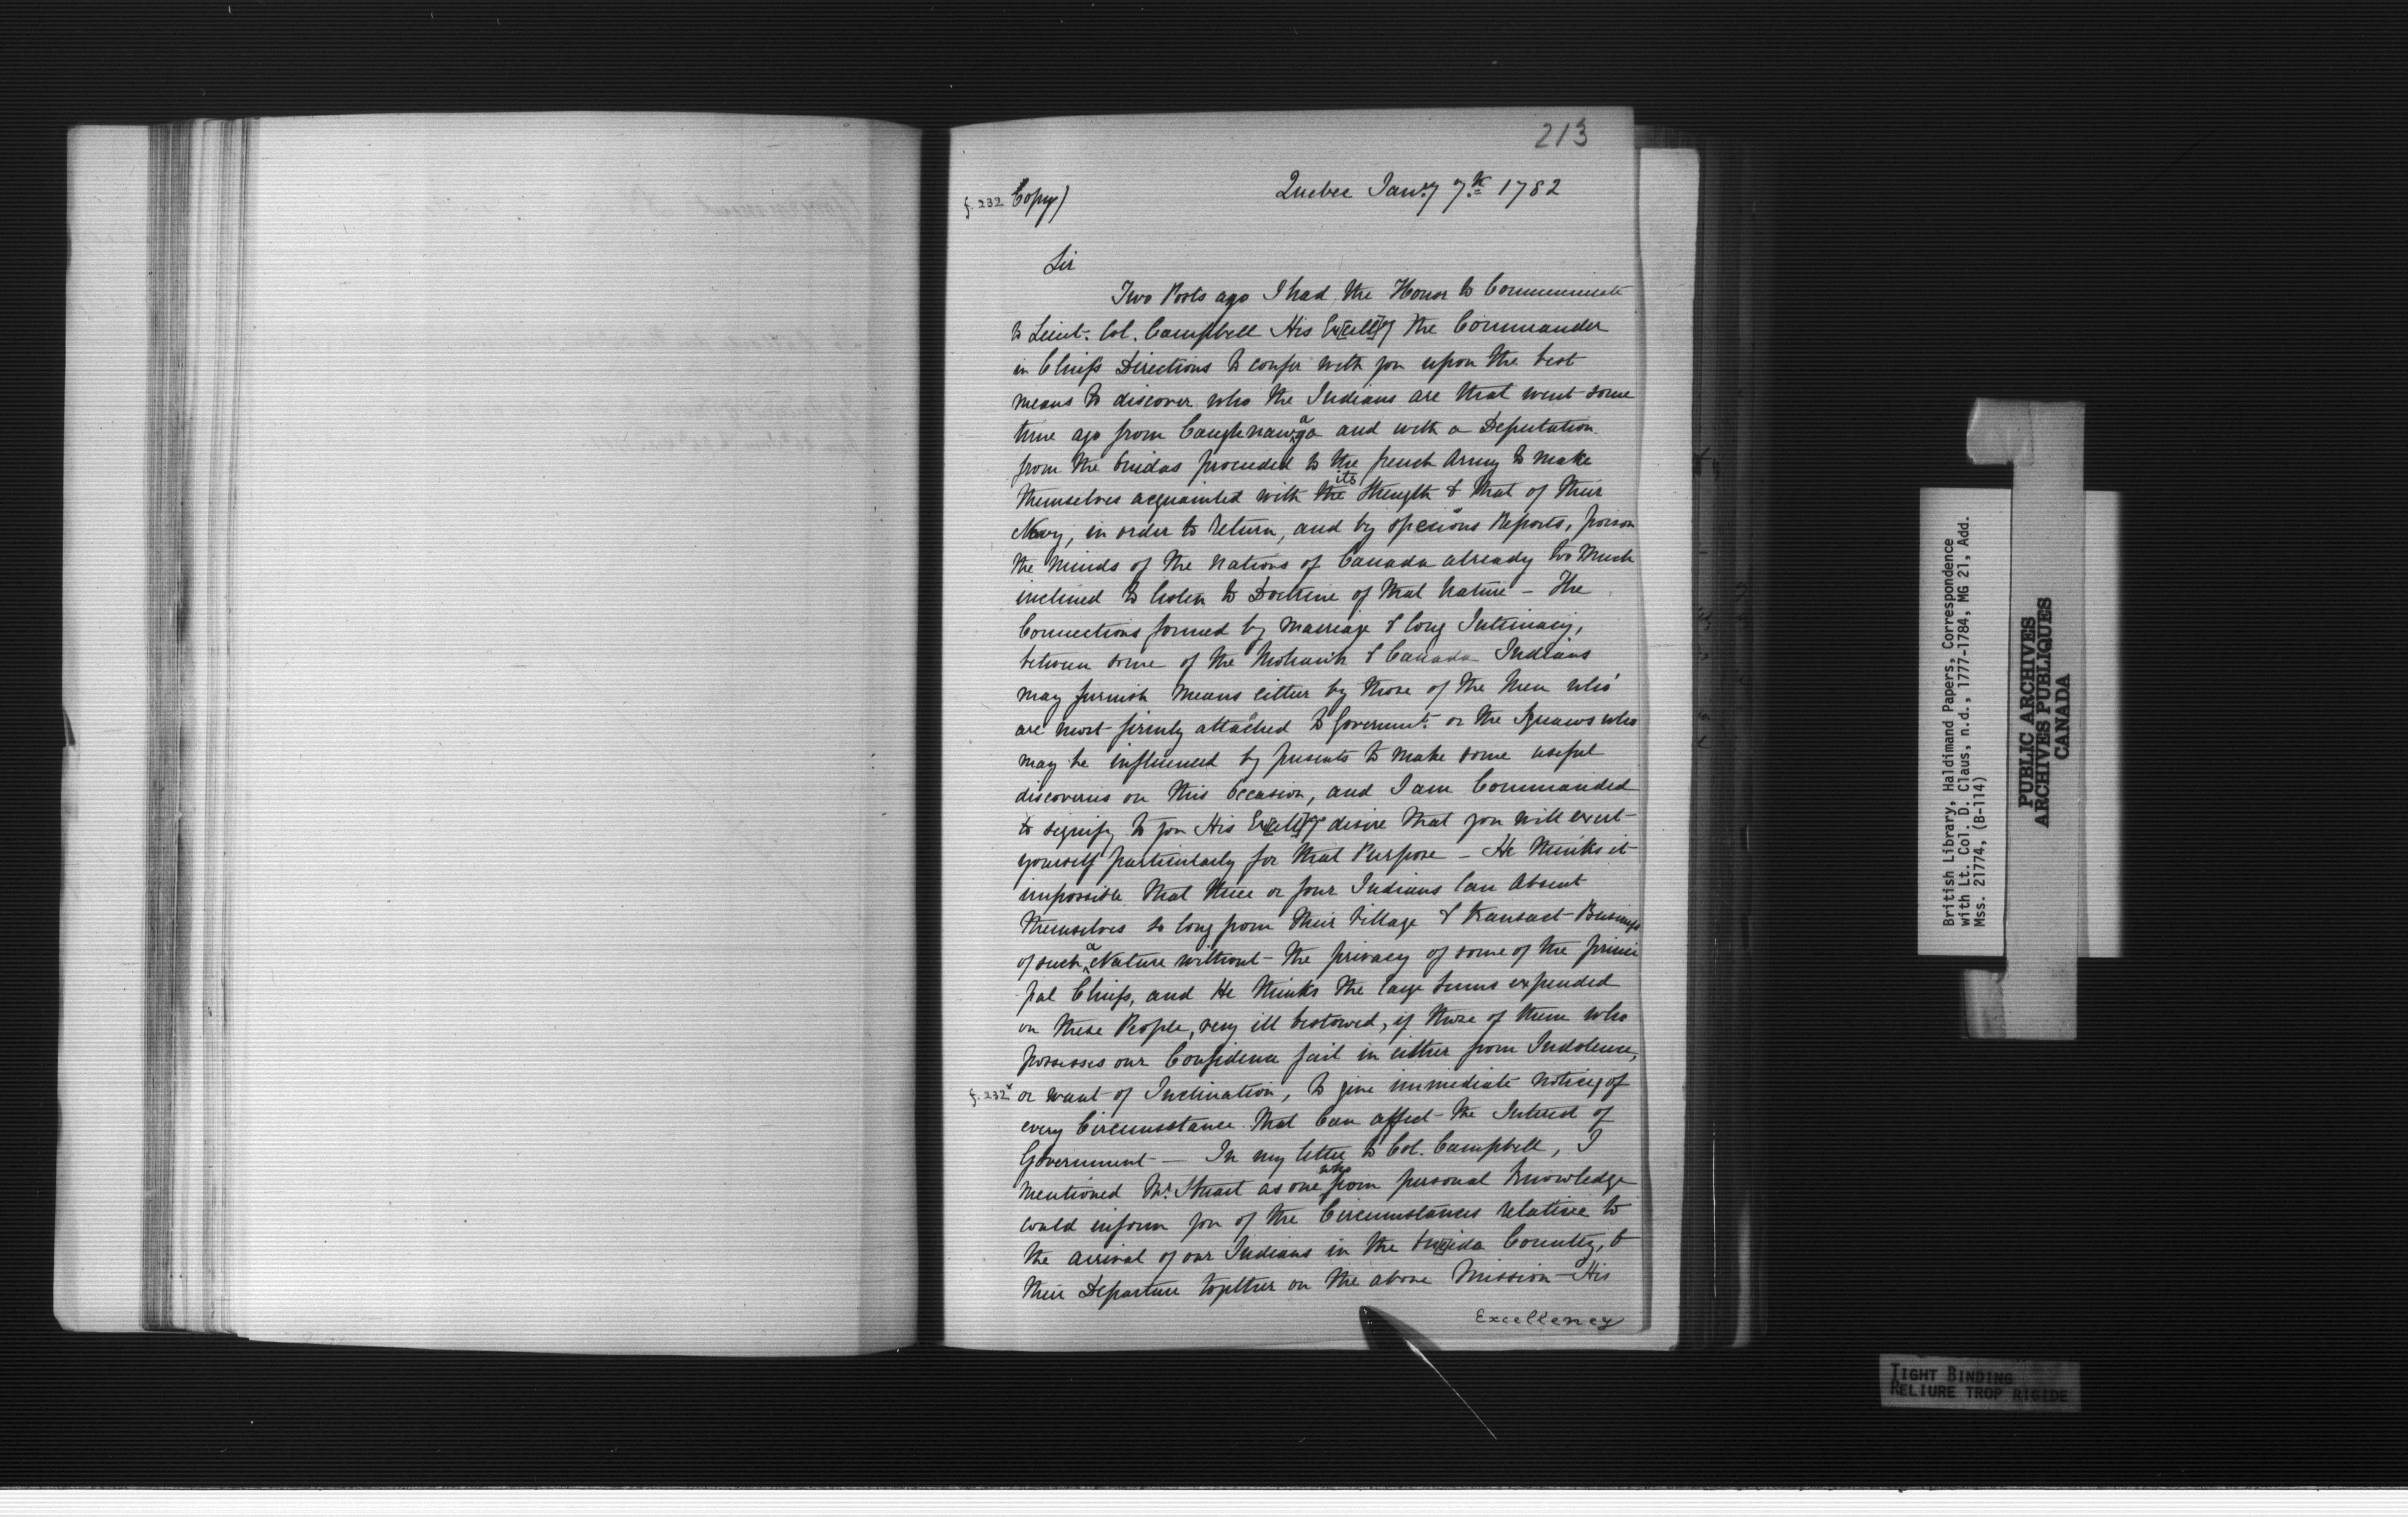 213
f. 232 Copy)
Quebec Janry 7th 1782
Sir
Two Posts ago I had the Honor to Communicate
to Lieut. Col. Campbell His Excell'y the Commander
in Chiefs Directions to confer with you upon the best
means to discover who the Indians are that went some
time ago from Caughnawaga and with a Deputation
from the Onidas proceeded to the french Army to make
themselves acquainted with the its Strength & that of their
Navy, in order to return, and by specious Reports, poison
the Minds of the Nations of Canada already too Much
inclined to listen to Doctrine of that Nature – The
Connections formed by Marriage & long Intimacy,
between some of the Mohawk & Canada Indians
may furnish Means either by those of the Men who
are most firmly attached to Governmt. or the Squaws who
may be influenced by presents to make some useful
discoveries on this Occasion, and I am Commanded
to signify to you His Excell'y desire that you will exert
yourself particularly for that Purpose – He thinks it
impossible that three or four Indians Can Absent
themselves so long from their Village & transact Business
of such a Nature without the privacy of some of the princi
pal Chiefs, and He thinks the large Sums expended
on these People, very ill bestowed, if those of them who
possesses our Confidence fail in either from Indolence,
f. 232v or want of Inclination, to give immediate notice of
every Circumstance that Can affect the Interest of
Government – In my letter to Col. Campbell, I
mentioned Mr. Stuart as one who from personal Knowledge
could inform you of the Circumstances relative to
the arrival of our Indians in the Oneida Country, &
their Departure together on the above Mission – His
Excellency
British Library, Haldimand Papers, Correspondence
with Lt. Col. D. Claus, n.d., 1777-1784, MG 21, Add.
Mss. 21774, (B-114)
PUBLIC ARCHIVES
ARCHIVES PUBLIQUES
CANADA
TIGHT BINDING
RELIURE TROP RIGIDE